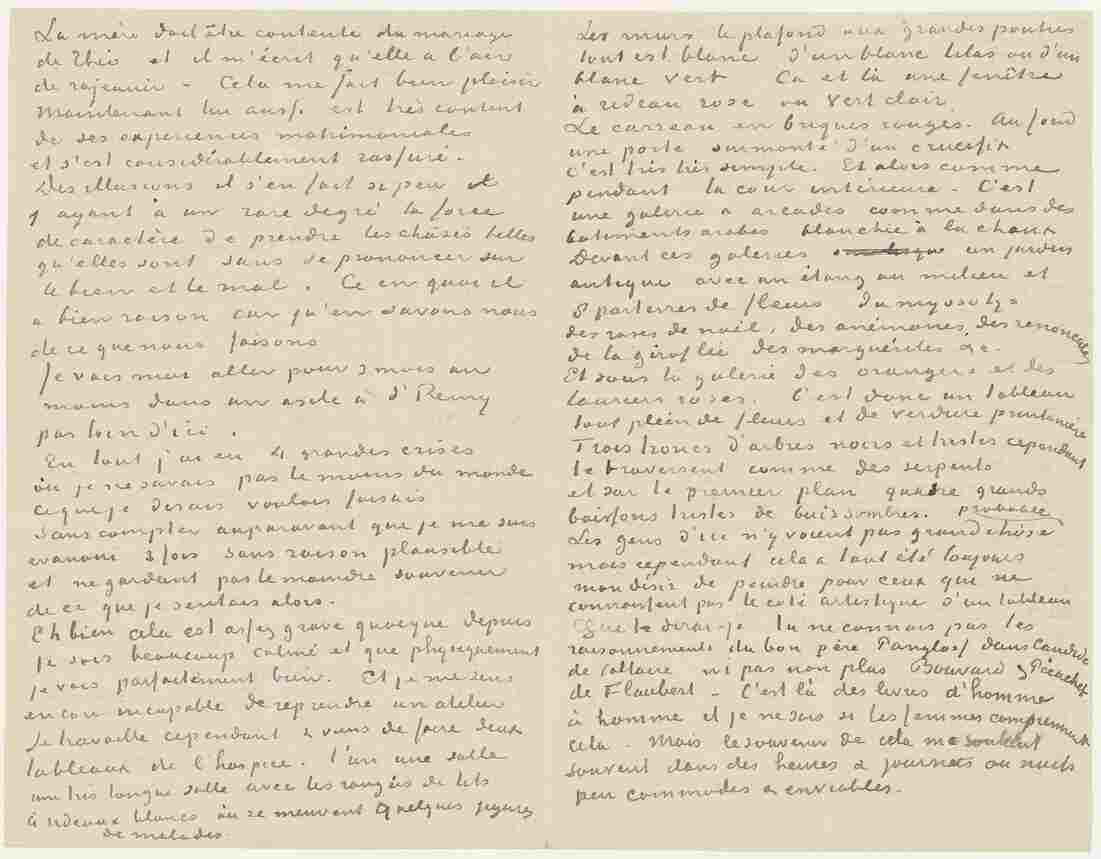 La mère doit être contente du mariage
de Théo et il m'écrit qu'elle a l'air
de rajeunir – Cela me fait bien plaisir
Maintenant lui aussi est très content
de ses expériences matrimoniales
et s'est considérablement rassuré.
Des illusions il s'en fait si peu et
y ayant à un rare degré la force
de caractère de prendre les choses telles
qu'elles sont sans se prononcer sur
le bien et le mal. Ce en quoi il
a bien raison car qu'en savons nous
de ce que nous faisons
Je vais moi aller pour 3 mois au
moins dans un asile à St Remy
pas loin d'ici.
En tout j'ai eu 4 grandes crises
où je ne savais pas le moins du monde
ce que je disais voulais faisais
Sans compter auparavant que je me suis
evanoui 3 fois sans raison plausible
et ne gardant pas le moindre souvenir
de ce que je sentais alors.
Eh bien cela est assez grave quoique depuis
je sois beaucoup calmé et que physiquement
je vais parfaitement bien. Et je me sens
encore incapable de reprendre un atelier
Je travaille cependant & viens de faire deux
tableaux de l'hospice. l'un une salle
une très longue salle avec les rangées de lits
à rideaux blancs où se meuvent quelques figures
de malades.
Les murs le plafond aux grandes poutres
tout est blanc d'un blanc lilas ou d'un
blanc vert Ca et là une fenêtre
à rideau rose ou vert clair.
Le carreau en briques rouges. Au fond
une porte surmonté d'un crucifix
c'est très très simple. Et alors comme
pendant la cour intérieure – C'est
une galerie a arcades comme dans des
batiments arabes blanchie à la chaux
Devant ces galeries un jardin
antique avec un étang au milieu et
8 parterres de fleurs du myosotys
des roses de noël, des anémones, des renoncules
de la giroflée des marguérites &c.
Et sous la galerie des orangers et des
lauriers roses. C'est donc un tableau
tout plein de fleurs et de verdure printanière
Trois troncs d'arbres noirs et tristes cependant
le traversent comme des serpents
et sur le premier plan quatre grands
buissons tristes de buis sombres.
Les gens d'ici n'y voient pas grand chôse
mais cependant cela a tout été toujours
mon désir de peindre pour ceux qui ne
connaissent pas le coté artistique d'un tableau
Que te dirai-je tu ne connais pas les
raisonnements du bon père Pangloss dans Candide
de Voltaire ni pas non plus Bouvard & Pécuchet
de Flaubert – C'est là des livres d'homme
à homme et je ne sais si les femmes comprennent
cela. Mais le souvenir de cela me soutient
souvent dans des heures & journées ou nuits
peu commodes & enviables.